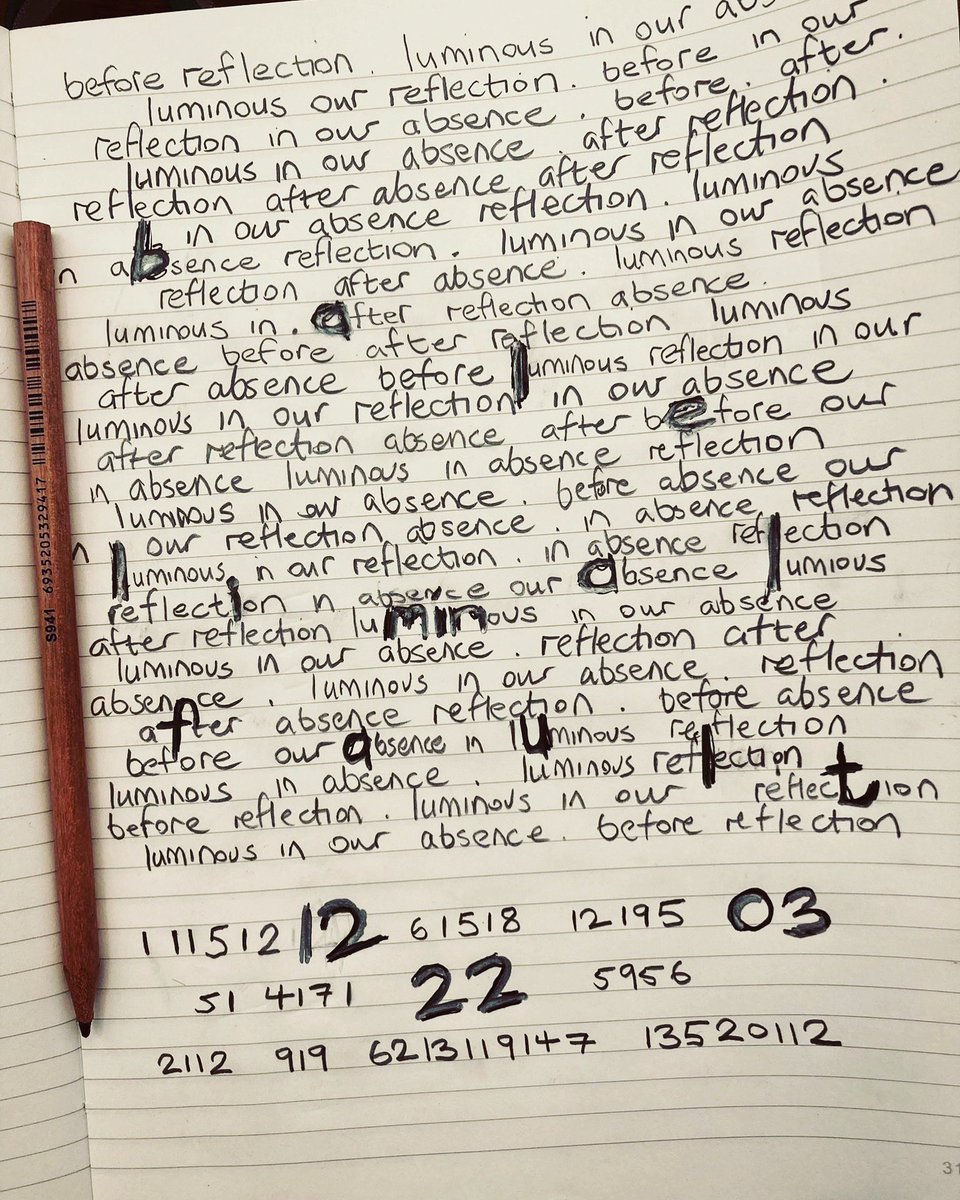 before reflection. luminous in our abs
luminous our reflection. before in our
reflection in our absence. before. after.
luminous in our absence. after reflection.
reflection after absence after reflection
in our absence reflection. luminous
n absence reflection. luminous in our absence
reflection after absence. luminous reflection
luminous in. after reflection absence.
absence before after reflection luminous
after absence before luminous reflection in our
luminous in our reflection in our absence
after reflection absence after before our
in absence luminous in absence reflection
luminous in our absence. before absence our
n our reflection absence. in absence reflection
luminous, in our reflection. in absence reflection
reflection in absence our absence lumious
after reflection luminous in our absence
luminous in our absence. reflection after
absennce. luminous in our absence. reflection
after absence reflection. before absence
before our absence in luminous reflection
luminous in absence. luminous reflection
before reflection. luminous in our reflection
luminous in our absence. before reflection
1 11512 12 61518 12195 03
51 4171 22 5956
2112 919 6213119147 13520112
31
S941 6935205329417